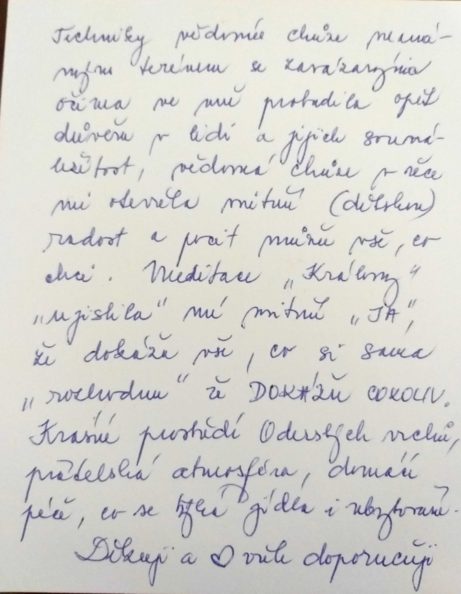 Techniky vědomé chůze neznámým
-ným terénem se zavázanýma
očima ve mě probudila opět
důvěru v lidi a jejich souná-
ležitost, vědomá chůze v řece
mi otevřela vnitřní (dětskou)
radost a pocit můžu vše, co
chci. Meditace „Královny"
„ujistila" mé vnitřní „JÁ",
že dokáže vše, co si sama
„rozhodnu" že DOKÁŽU COKOLIV.
Krásné prostředí Oderských vrchů,
přátelská atmosféra, domácí
péče, co se týká jídla i ubytování.
Děkuji a ♡ vřele doporučuji